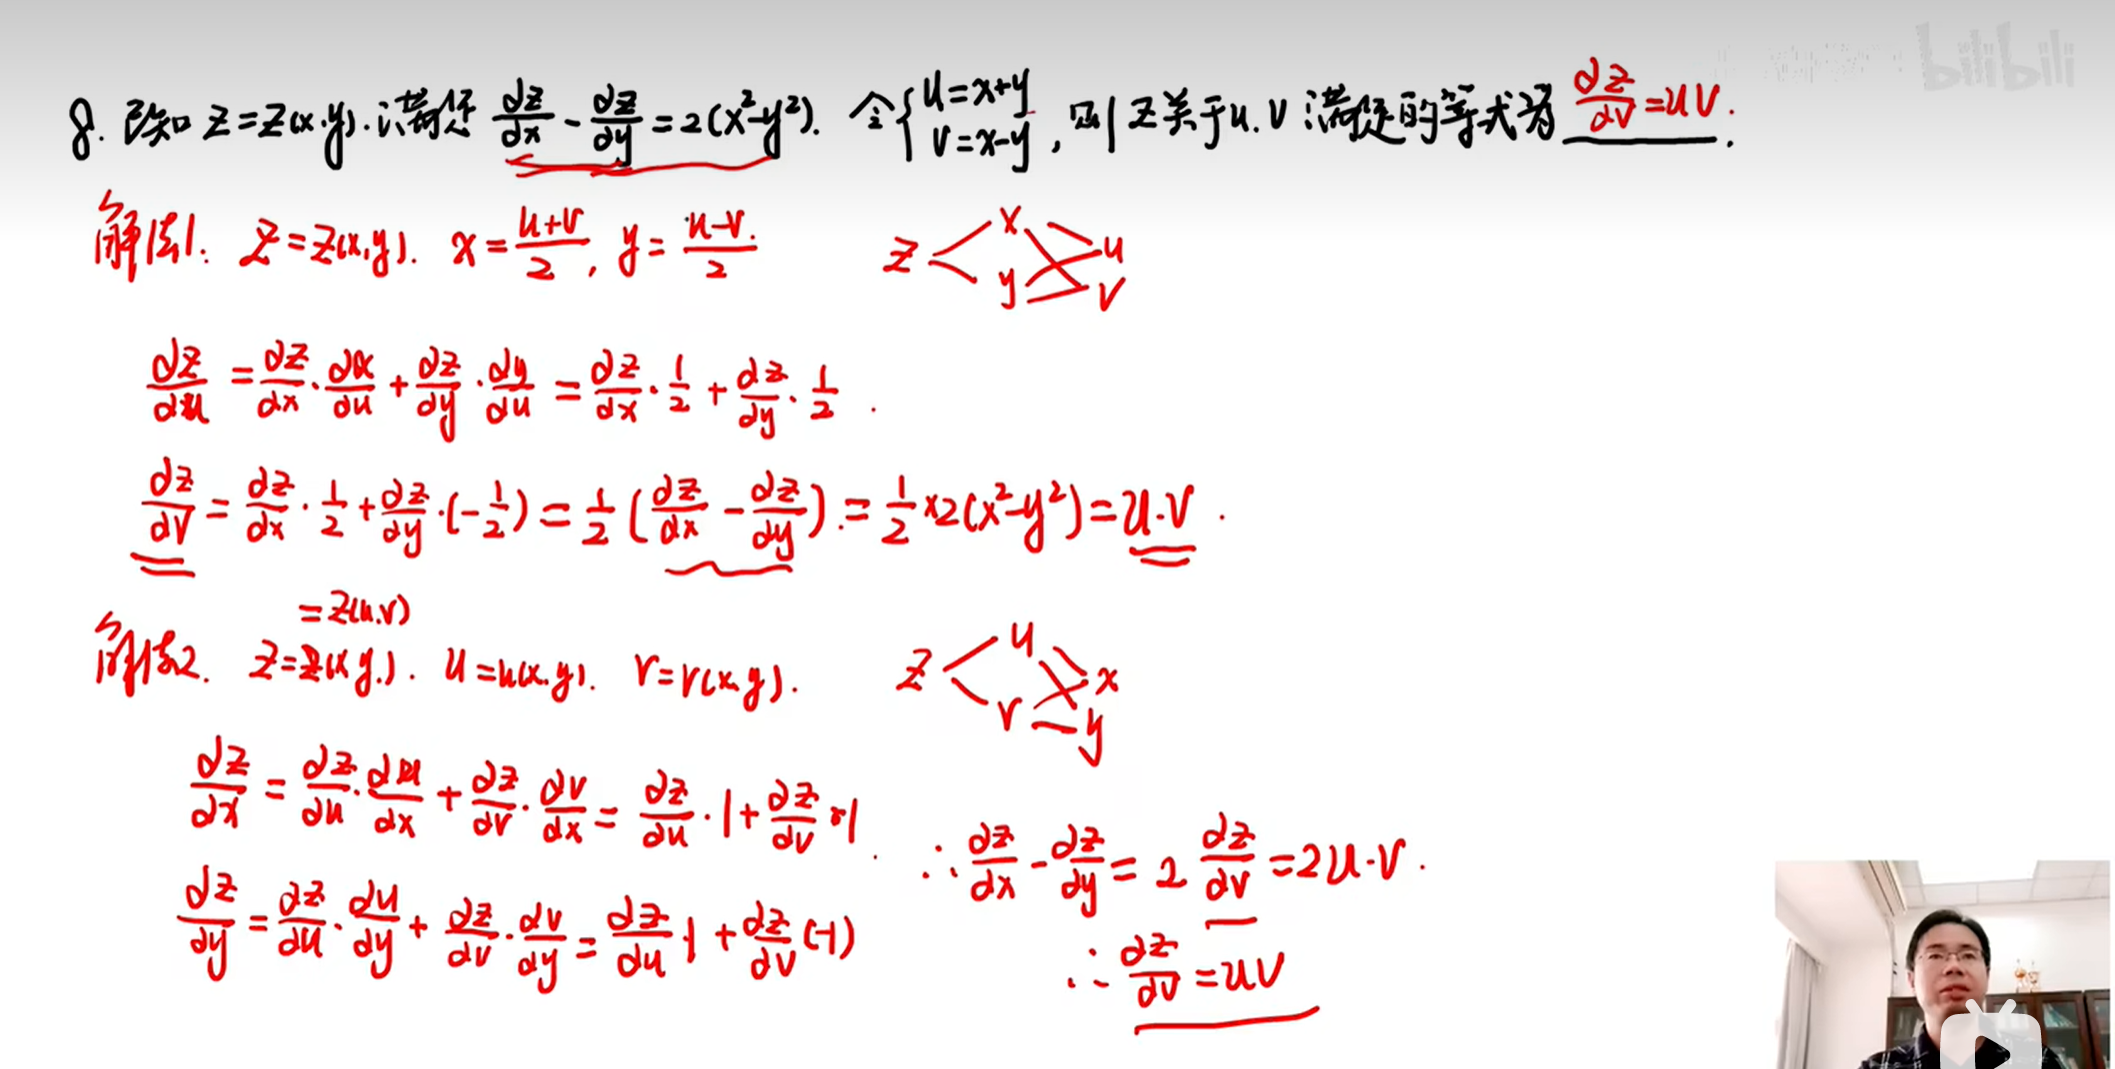 bilibili
8. 已知 z=z(x,y). 满足 ∂z/∂x - ∂z/∂y = 2(x²-y²). 令 { u=x+y v=x-y , 则 z关于u.v 满足的等式为 ∂z/∂v = uv.
解法1: z=z(x,y). x=(u+v)/2, y=(u-v)/2
z x y u v
∂z/∂u = ∂z/∂x · ∂x/∂u + ∂z/∂y · ∂y/∂u = ∂z/∂x · 1/2 + ∂z/∂y · 1/2 .
∂z/∂v = ∂z/∂x · 1/2 + ∂z/∂y · (-1/2) = 1/2 (∂z/∂x - ∂z/∂y). = 1/2 ×2(x²-y²) = u·v .
=z(u,v)
解法2. z=z(x,y). u=u(x,y). v=v(x,y).
z u v x y
∂z/∂x = ∂z/∂u · ∂u/∂x + ∂z/∂v · ∂v/∂x = ∂z/∂u · 1 + ∂z/∂v · 1
∂z/∂y = ∂z/∂u · ∂u/∂y + ∂z/∂v · ∂v/∂y = ∂z/∂u · 1 + ∂z/∂v (-1)
∴ ∂z/∂x - ∂z/∂y = 2 ∂z/∂v = 2u·v .
∴ ∂z/∂v = uv